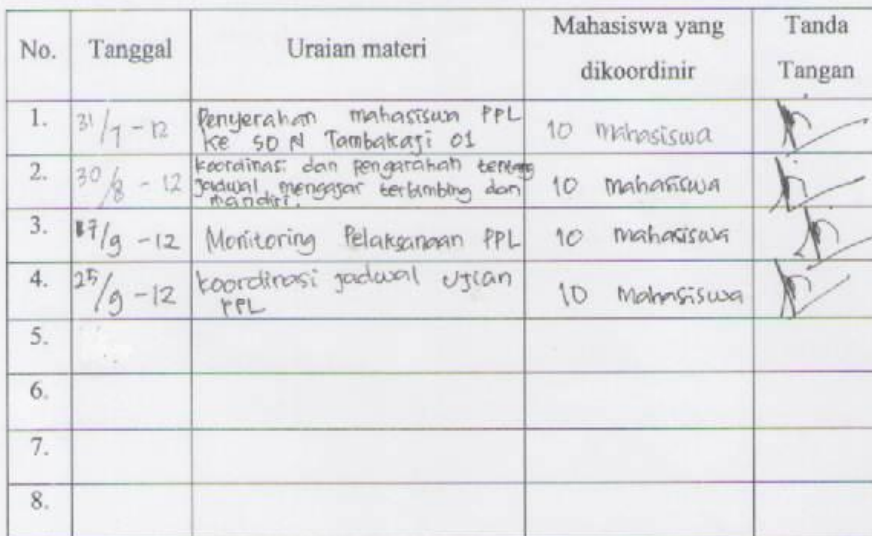 No. Tanggal Uraian materi Mahasiswa yang dikoordinir Tanda Tangan
1. 31/7-12 Penyerahan mahasiswa PPL
ke SD N Tambakaji 01 10 mahasiswa
2. 30/8-12 koordinasi dan pengarahan tentang
jadwal mengajar terbimbing dan
mandiri. 10 mahasiswa
3. 17/9-12 Monitoring Pelaksanaan PPL 10 mahasiswa
4. 25/9-12 koordinasi jadwal Ujian
PPL 10 Mahasiswa
5.
6.
7.
8.